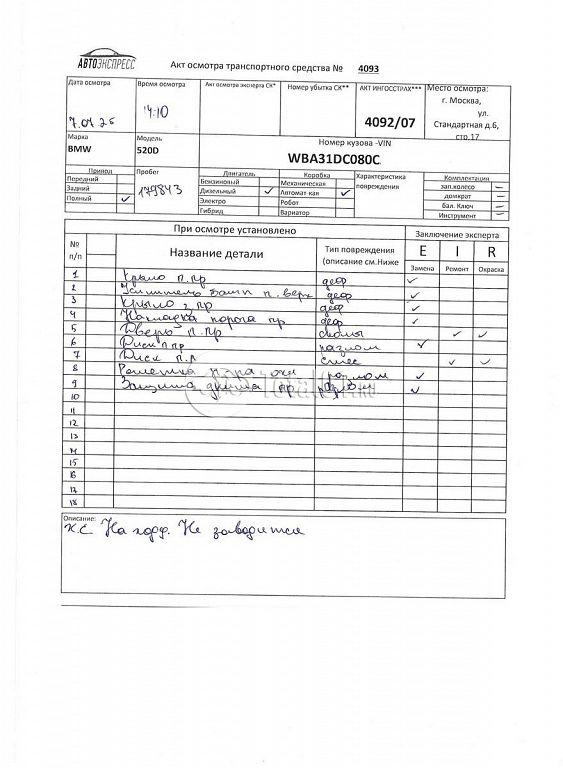 АВТОЭКСПРЕСС
Акт осмотра транспортного средства № 4093
Дата осмотра
Время осмотра
Акт осмотра эксперта СК*
Номер убытка СК**
АКТ ИНГОССТРАХ***
Место осмотра:
г. Москва,
ул.
Стандартная д.6,
стр.17
14:10
4092/07
Марка
BMW
Модель
520D
Номер кузова -VIN
WBA31DC080C
Привод
Передний
Задний
Полный ✓
Пробег
179843
Двигатель
Бензиновый
Дизельный ✓
Электро
Гибрид
Коробка
Механическая
Автомат-кая ✓
Робот
Вариатор
Характеристика
повреждения
Комплектация
зап.колесо –
домкрат –
бал. Ключ –
Инструмент –
При осмотре установлено
Заключение эксперта
№
п/п
Название детали
Тип повреждения
(описание см.Ниже
E I R
Замена Ремонт Окраска
1 Крыло п.пр деф ✓
2 Усилитель п. верх деф ✓
3 Крыло з пр деф ✓
4 Накладка порога пр деф ✓
5 Дверь п.пр сколы ✓ ✓
6 Диск п пр разлом ✓
7 Диск п.л ✓ ✓
8 Решетка разлом ✓
9 Защита днища пр разрыв ✓
10
11
12
13
14
15
16
17
18
Описание:
К.С На ход. Не заводится